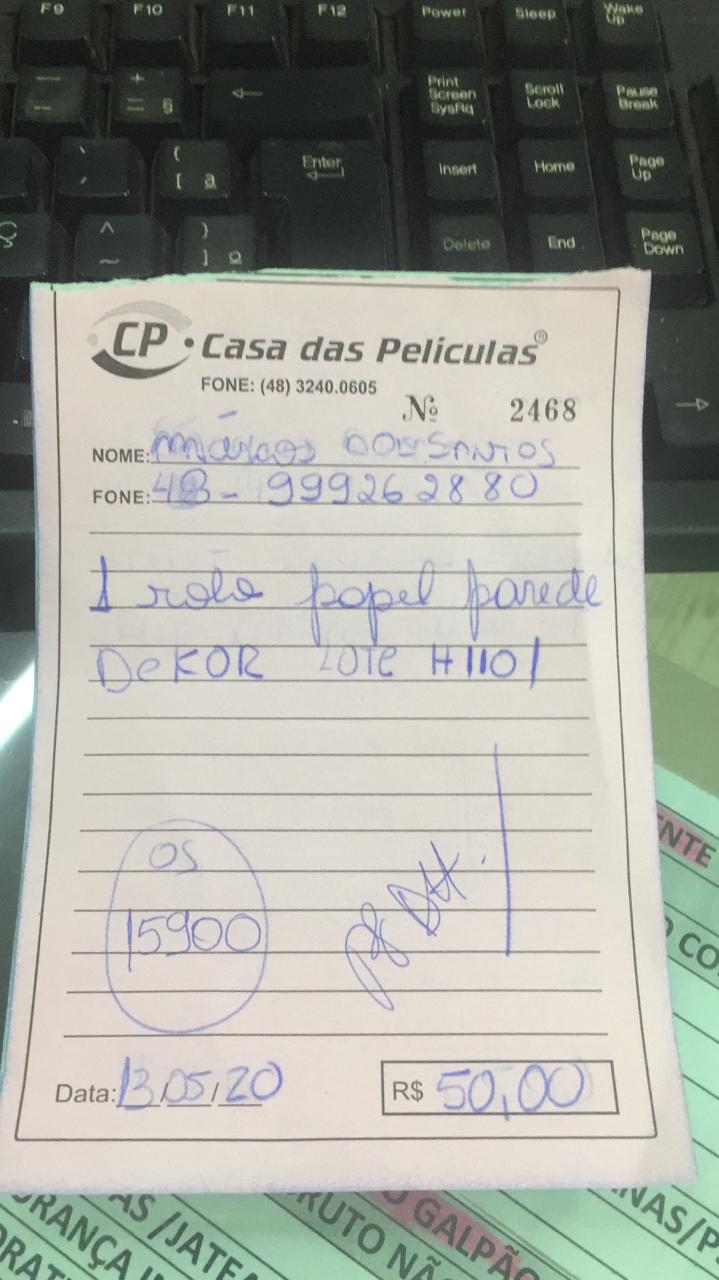 F9 F10 F11 F12 Power Sleep Wake Up
Print Screen SysRq Scroll Lock Pause Break
Enter Insert Home Page Up
Ç Delete End Page Down
CP · Casa das Películas®
FONE: (48) 3240.0605
Nº 2468
NOME: Márcos dos Santos
FONE: 48- 999262880
1 rolo papel parede
DeKOR LOTE H1101
OS
15900
Data: 13/05/20 R$ 50,00
ENTE
O CO
NAS/P
AS /JATE
O GALPÃO
RUTO NÃO
URANÇA